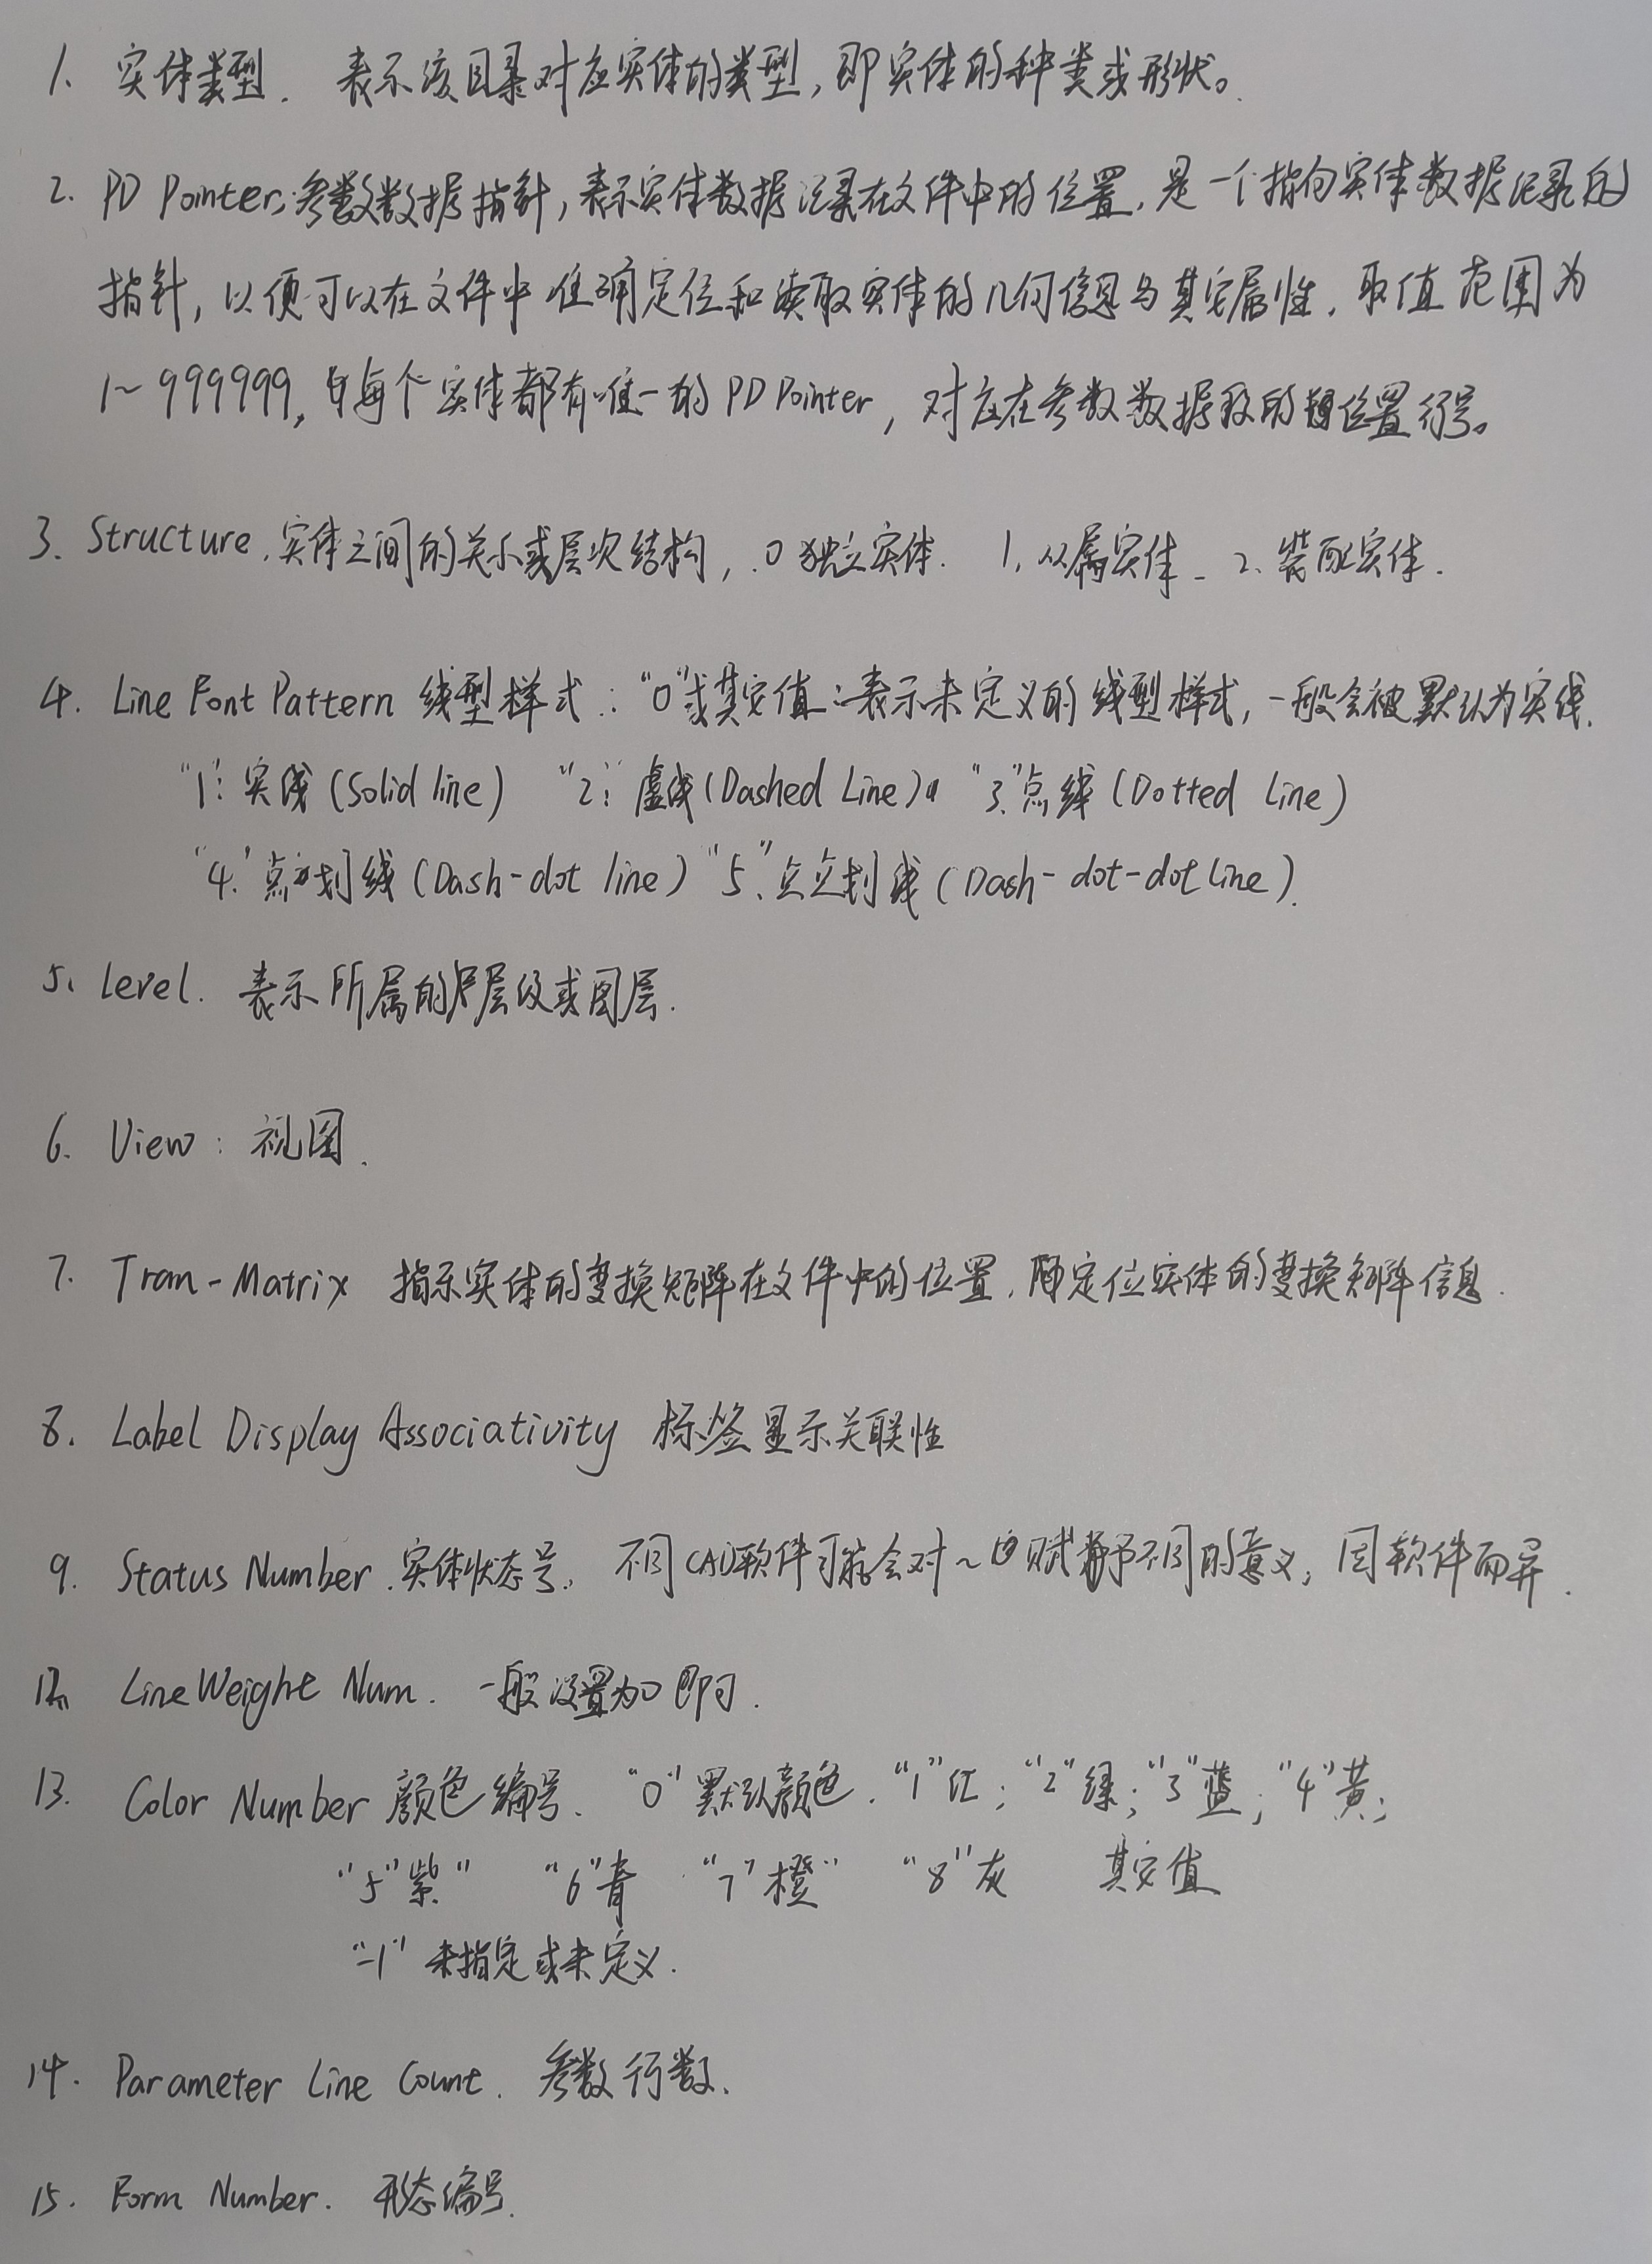 1. 实体类型. 表示该目录对应实体的类型,即实体的种类或形状。
2. PD Pointer:参数数据指针,表示实体数据记录在文件中的位置,是一个指向实体数据记录的
指针,以便可以在文件中准确定位和读取实体的几何信息与其它属性,取值范围为
1~999999,每个实体都有唯一的PD Pointer,对应在参数数据段的位置行号。
3. Structure.实体之间的关系或层次结构,.0独立实体. 1.从属实体. 2.装配实体.
4. Line Font Pattern 线型样式:"0"或其它值:表示未定义的线型样式,一般会被默认为实线.
"1":实线(Solid line) "2":虚线(Dashed Line) "3."点线(Dotted Line)
"4."点划线(Dash-dot line) "5."点点划线(Dash-dot-dot Line).
5. Level. 表示所属的层级或图层.
6. View:视图.
7. Tran-Matrix 指示实体的变换矩阵在文件中的位置,定位实体的变换矩阵信息.
8. Label Display Associativity 标签显示关联性
9. Status Number.实体状态号, 不同CAD软件可能会对~赋予不同的意义,因软件而异.
12. Line Weight Num. 一般设置为0即可.
13. Color Number 颜色编号. "0"默认颜色."1"红;"2"绿;"3"蓝;"4"黄;
"5"紫" "6"青 "7"橙" "8"灰 其它值
"-1"未指定或未定义.
14. Parameter Line Count. 参数行数.
15. Form Number. 形态编号.